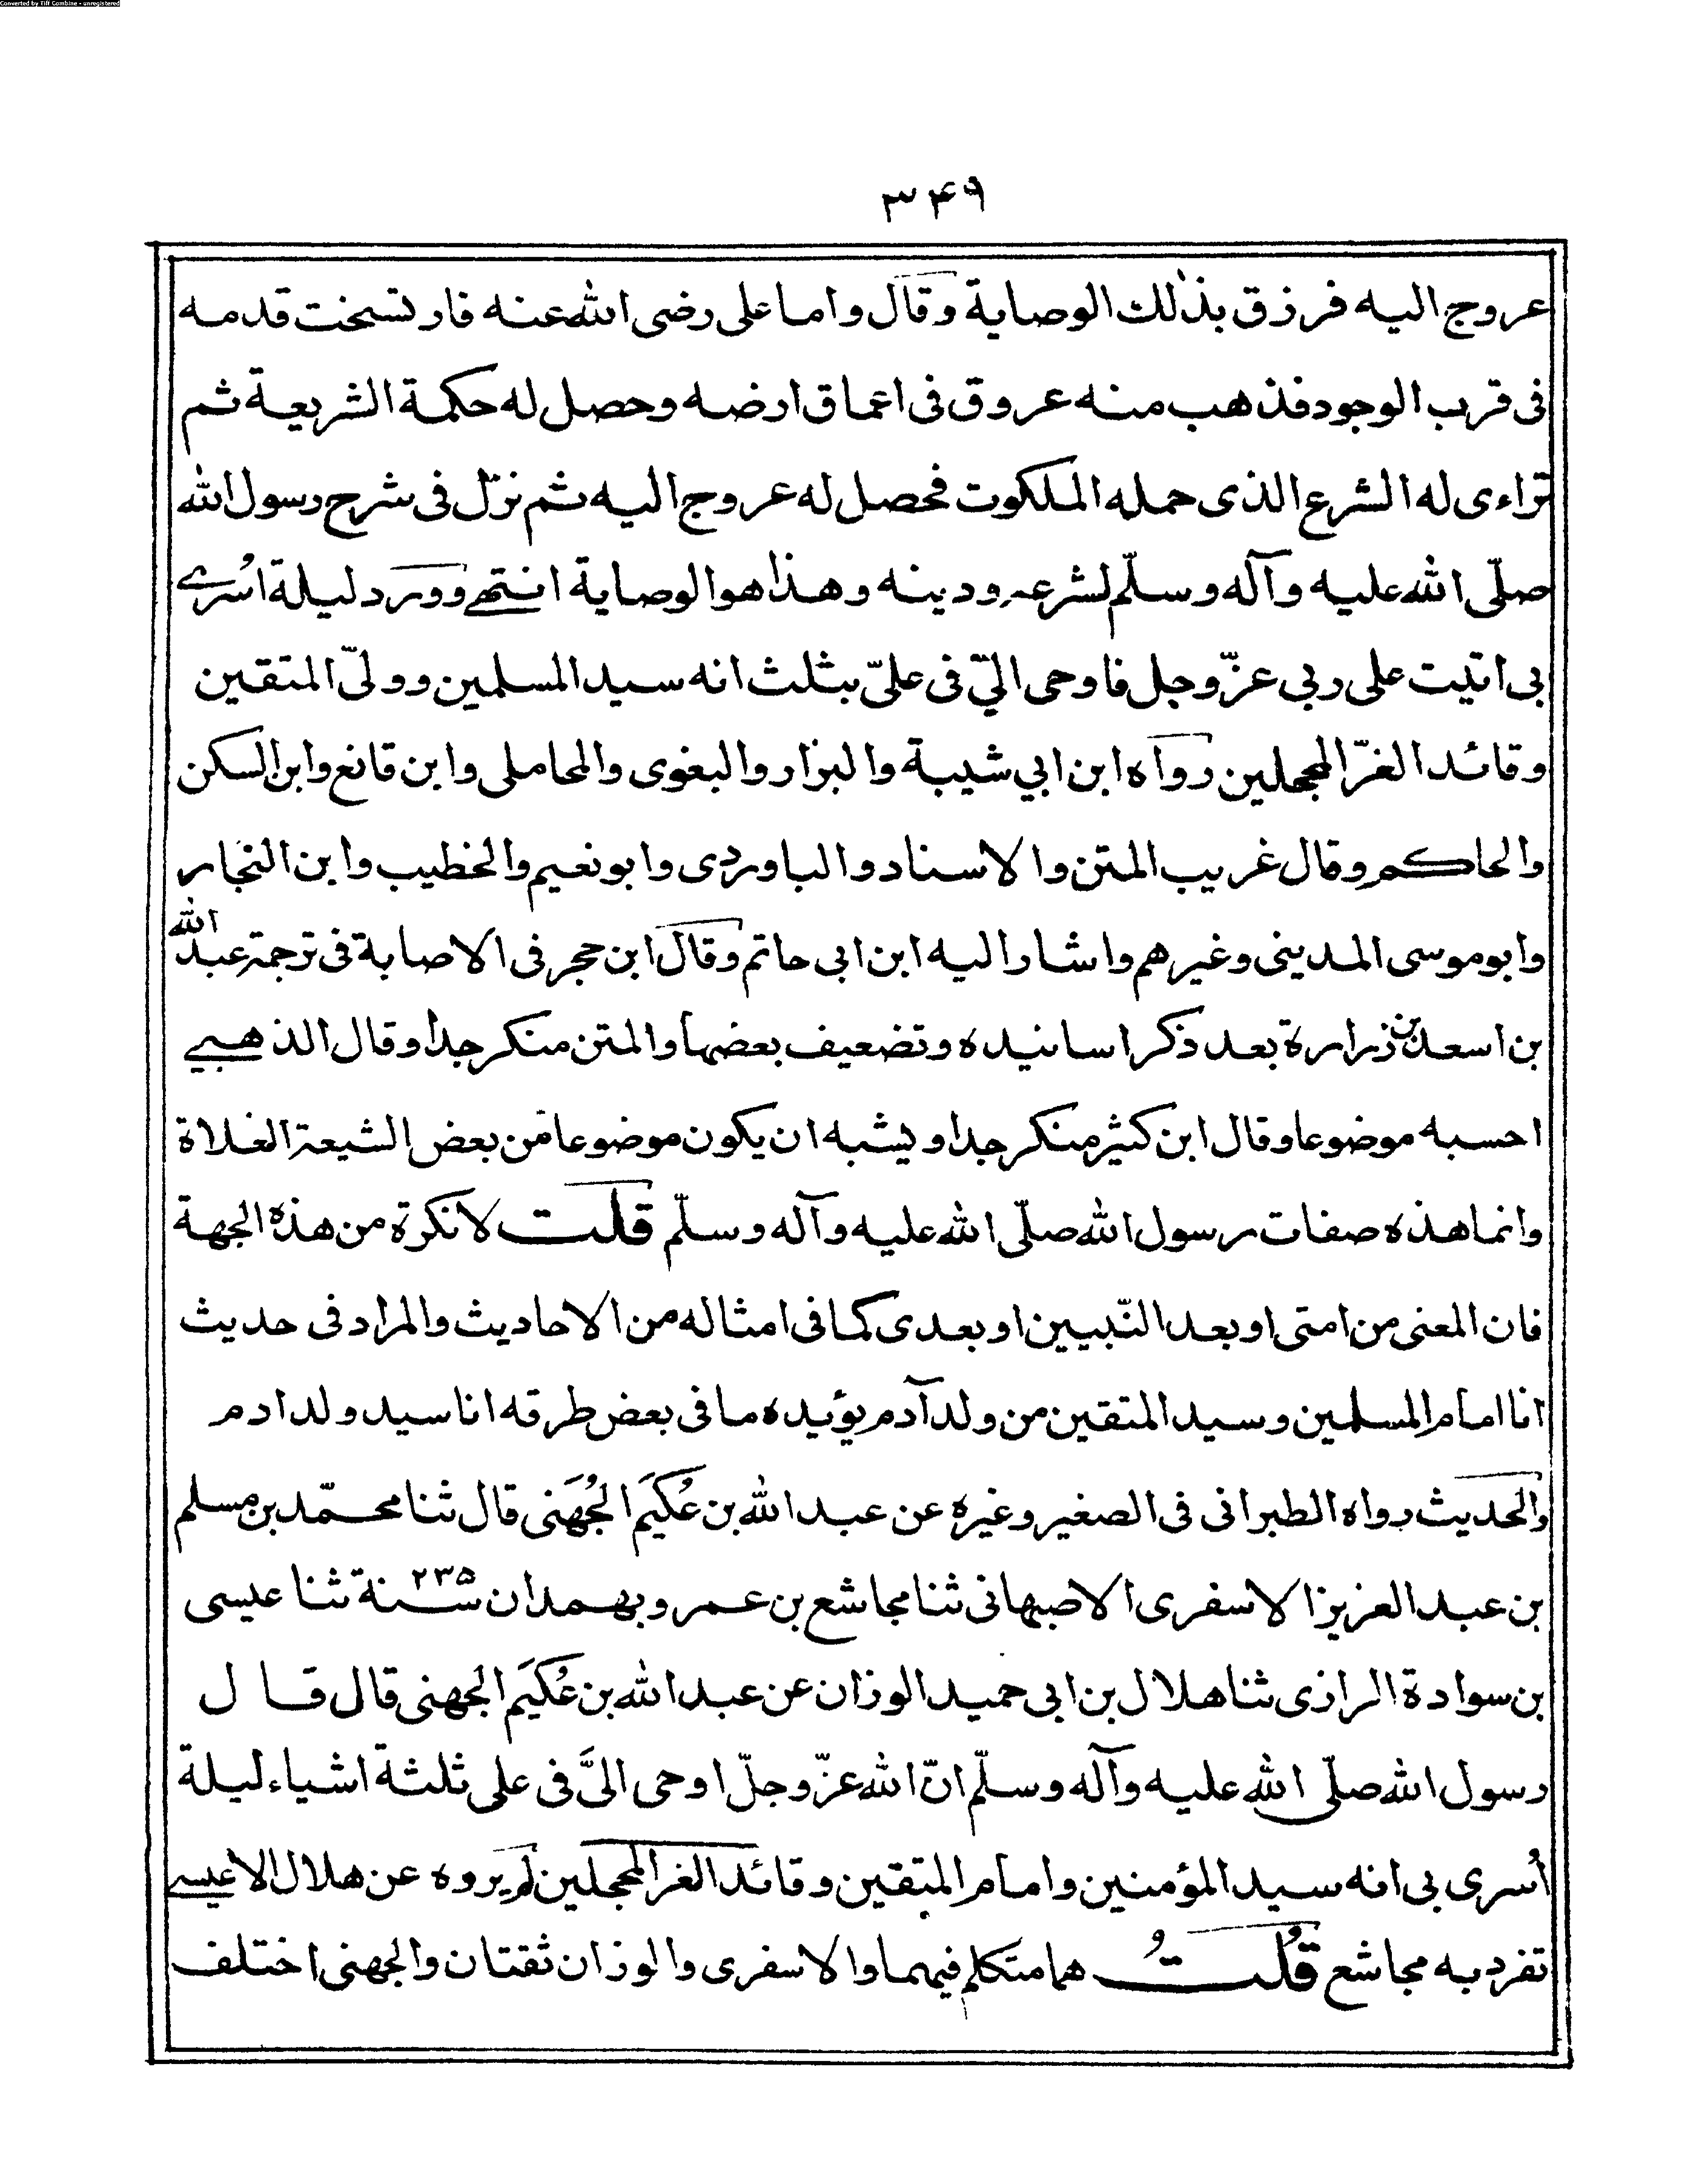 Converted by Tiff Combine - unregistered
۳۴۹
عروج اليه فرزق بذٰلك الوصاية وقال واما على رضى الله عنه فارتسخت قدمه
فى قرب الوجود فذهب منه عروق فى اعماق ارضه وحصل له حكمة الشريعة ثم
تراءى له الشرع الذى حمله الملكوت فحصل له عروج اليه ثم نزل فى شرح رسول الله
صلّى الله عليه وآله وسلّم لشرعه ودينه وهذا هو الوصاية انتهے وورد ليلة اُسرے
بى اتيت على ربى عزّ وجل فاوحى الىّ فى علىّ بثلث انه سيد المسلمين وولىّ المتقين
وقائد الغرّ المحجلين رواه ابن ابي شيبة والبزار والبغوى والمحاملى وابن قانع وابن السكن
والحاكم وقال غريب المتن والاسناد والباوردى وابو نعيم والخطيب وابن النجار
وابو موسى المدينى وغيرهم واشار اليه ابن ابى حاتم وقال ابن حجر فى الاصابة فى ترجمة عبد الله
بن اسعد بن زرارة بعد ذكر اسانيده وتضعيف بعضها والمتن منكر جدا وقال الذهبے
احسبه موضوعا وقال ابن كثير منكر جدا ويشبه ان يكون موضوعا من بعض الشيعة الغلاة
وانما هذه صفات رسول الله صلّى الله عليه وآله وسلّم قلت لا نكرة من هذه الجهة
فان المعنى من امتى او بعد النّبيين او بعدى كما فى امثاله من الاحاديث والمراد فى حديث
انا امام المسلمين وسيد المتقين من ولد آدم يؤيده ما فى بعض طرقه انا سيد ولد ادم
والحديث رواه الطبرانى فى الصغير وغيره عن عبد الله بن عُكَيم الجُهَنى قال ثنا محمّد بن مسلم
بن عبد العزيز الاسفرى الاصبهانى ثنا مجاشع بن عمرو بهمدان سنة ۲۳۵ ثنا عيسى
بن سوادة الرازى ثنا هلال بن ابى حميد الوزان عن عبد الله بن عُكَيم الجهنى قال قال
رسول الله صلّى الله عليه وآله وسلّم انّ الله عزّ وجلّ اوحى الىَّ فى على ثلثة اشياء ليلة
اُسرى بى انه سيد المؤمنين وامام المتقين وقائد الغر المحجلين لم يروه عن هلال الا عيسے
تفرد به مجاشع قُلتُ هما متكلم فيهما والاسفرى والوزان ثقتان والجهنى اختلف